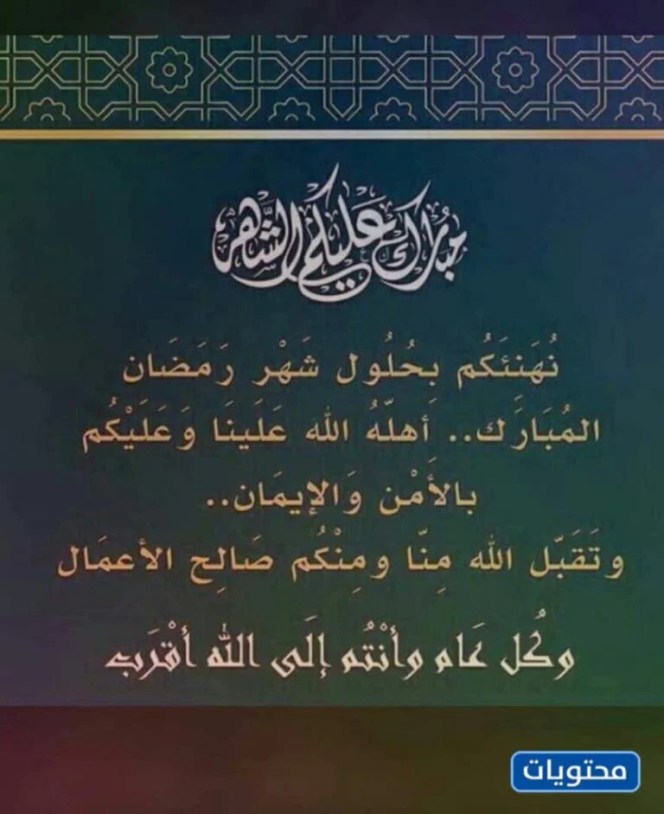 مبارك عليكم الشهر
نُهَنئَكُم بحُلُول شَهْر رَمَضَان
المُبَارَك.. أَهلّهُ الله عَلَينَا وَعَلَيْكُم
بالأَمْن وَالإيمَان..
وتَقَبّل الله مِنّا ومِنْكُم صَالِح الأعمَال
وكُل عَام وأنْتُم إلَى الله أقْرَب
محتويات